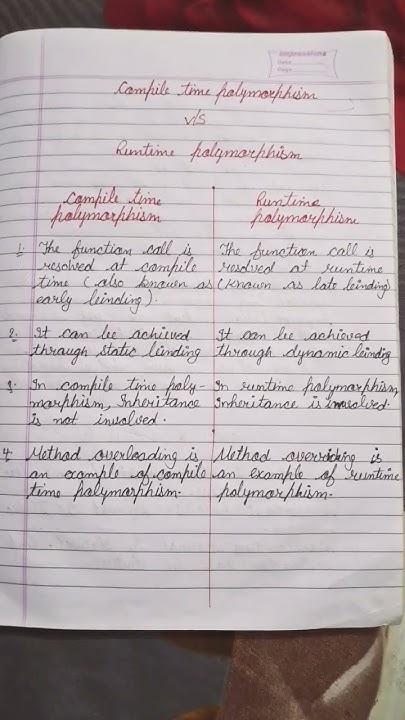 Compile time polymorphism
v/s
Runtime polymorphism
Compile time
polymorphism
1. The function call is
resolved at compile
time (also known as
early binding).
2. It can be achieved
through static binding
3. In compile time poly-
morphism, Inheritance
is not involved.
4. Method overloading is
an example of compile
time polymorphism.
Runtime
polymorphism
The function call is
resolved at runtime
(known as late binding)
It can be achieved
through dynamic binding
In runtime polymorphism,
Inheritance is involved.
Method overriding is
an example of runtime
polymorphism.